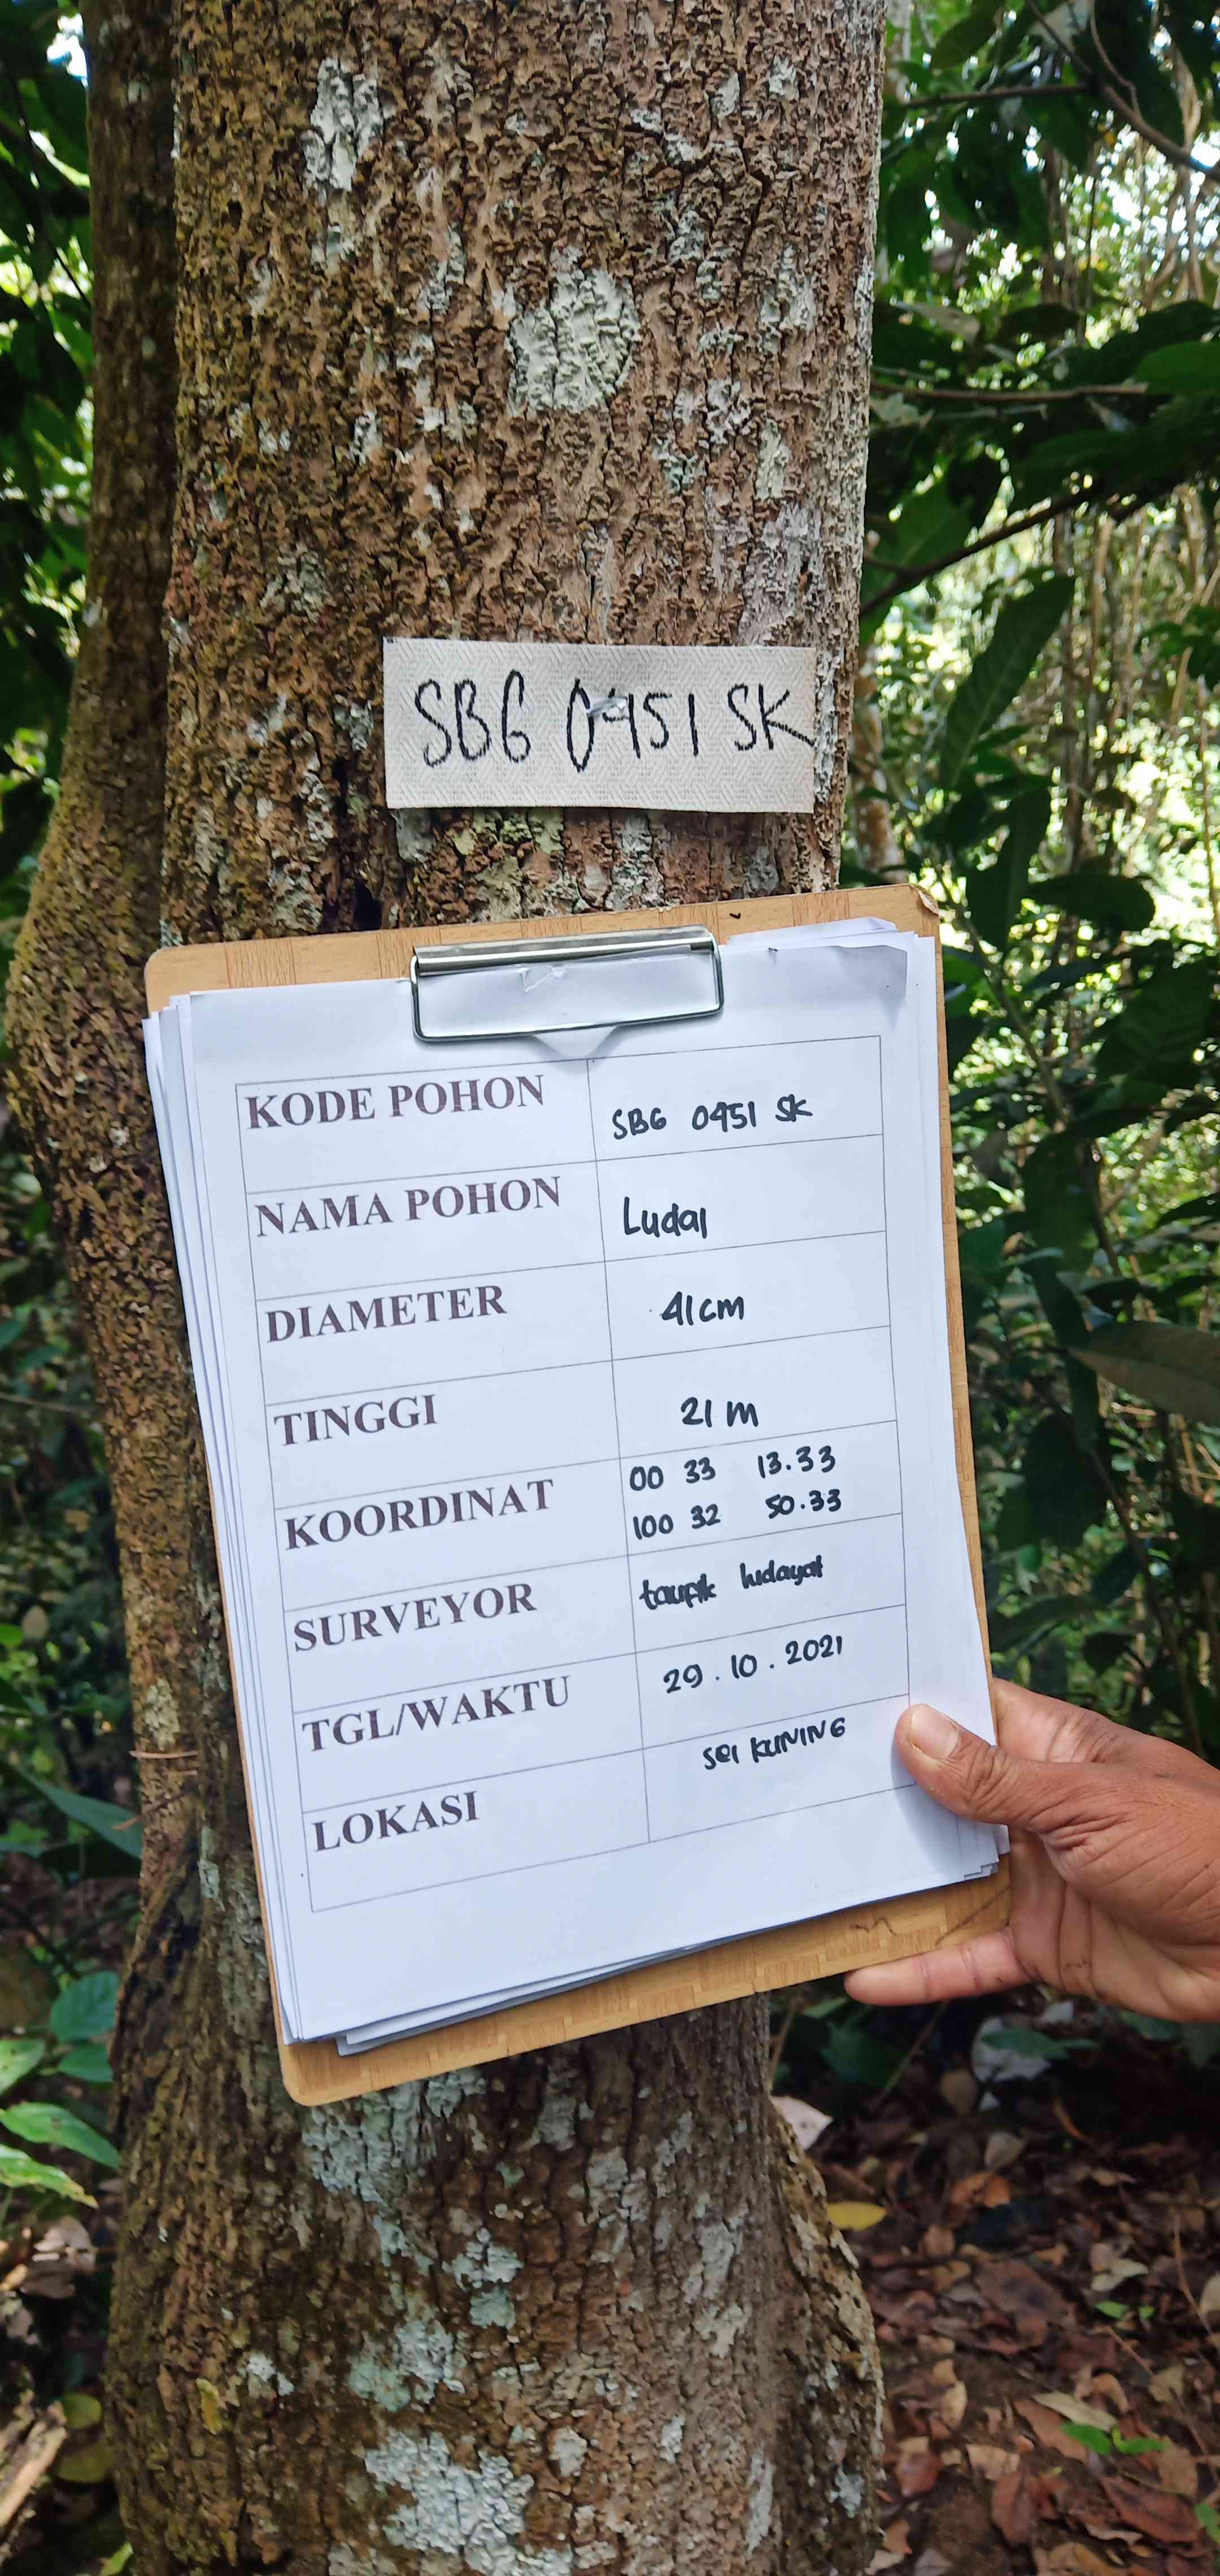 SBG 0451 SK
KODE POHON SBG 0451 SK
NAMA POHON Ludai
DIAMETER 41 cm
TINGGI 21 m
KOORDINAT 00 33 13.33
100 32 50.33
SURVEYOR taufik hidayat
TGL/WAKTU 29.10.2021
LOKASI Sei KUNING